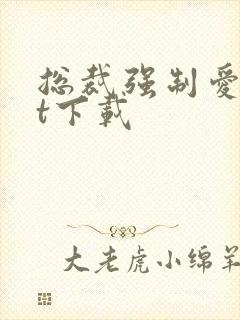 总裁强制爱
t下载
大老虎小绵羊